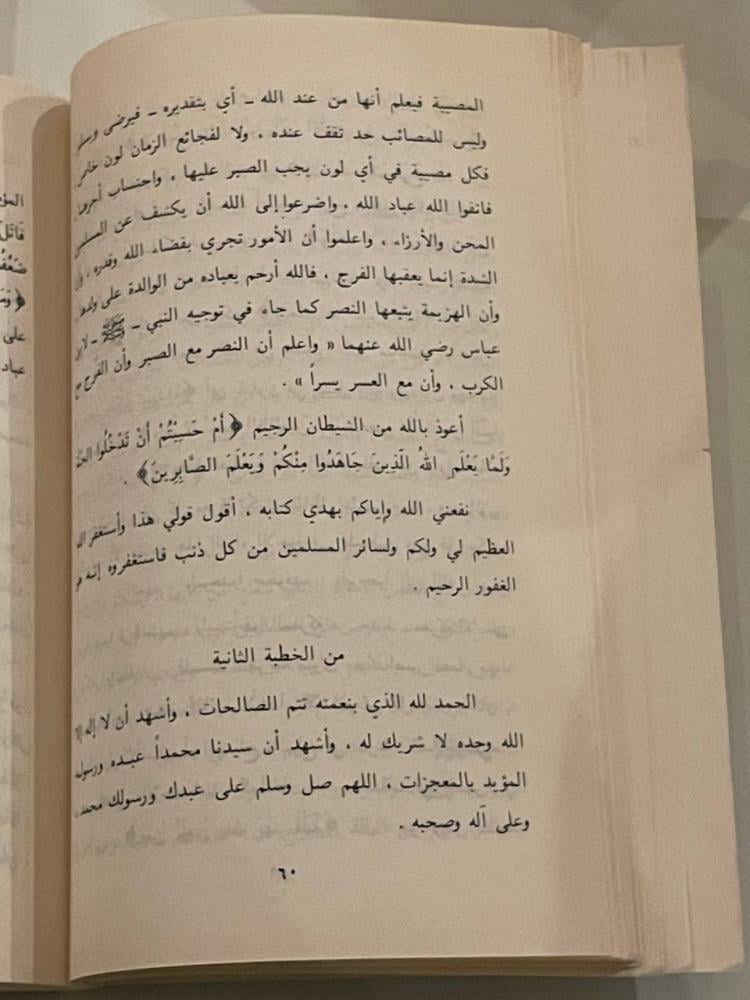 المصيبة فيعلم أنها من عند الله ـ أي بتقديره ـ فيرضى وسلم
وليس للمصائب حد تقف عنده ، ولا لفجائع الزمان لون خاص
فكل مصيبة في أي لون يجب الصبر عليها ، واحتساب أجرها
فاتقوا الله عباد الله ، واضرعوا إلى الله أن يكشف عن المسلمين
المحن والأرزاء ، واعلموا أن الأمور تجري بقضاء الله وقدره ، وأن
الشدة إنما يعقبها الفرج ، فالله أرحم بعباده من الوالدة على ولدها
وأن الهزيمة يتبعها النصر كما جاء في توجيه النبي ـ ﷺ ـ لابن
عباس رضي الله عنهما « واعلم أن النصر مع الصبر وأن الفرج مع
الكرب ، وأن مع العسر يسراً » .
أعوذ بالله من الشيطان الرجيم ﴿ أَمْ حَسِبْتُمْ أَنْ تَدْخُلُوا
وَلَمَّا يَعْلَمِ اللهُ الَّذِينَ جَاهَدُوا مِنْكُمْ وَيَعْلَمَ الصَّابِرِينَ﴾ .
نفعني الله وإياكم بهدي كتابه ، أقول قولي هذا وأستغفر
العظيم لي ولكم ولسائر المسلمين من كل ذنب فاستغفروه إنه هو
الغفور الرحيم .
من الخطبة الثانية
الحمد لله الذي بنعمته تتم الصالحات ، وأشهد أن لا إله إلا
الله وحده لا شريك له ، وأشهد أن سيدنا محمداً عبده ورسوله
المؤيد بالمعجزات ، اللهم صل وسلم على عبدك ورسولك محمد ،
وعلى آله وصحبه .
٦٠
على
عباد